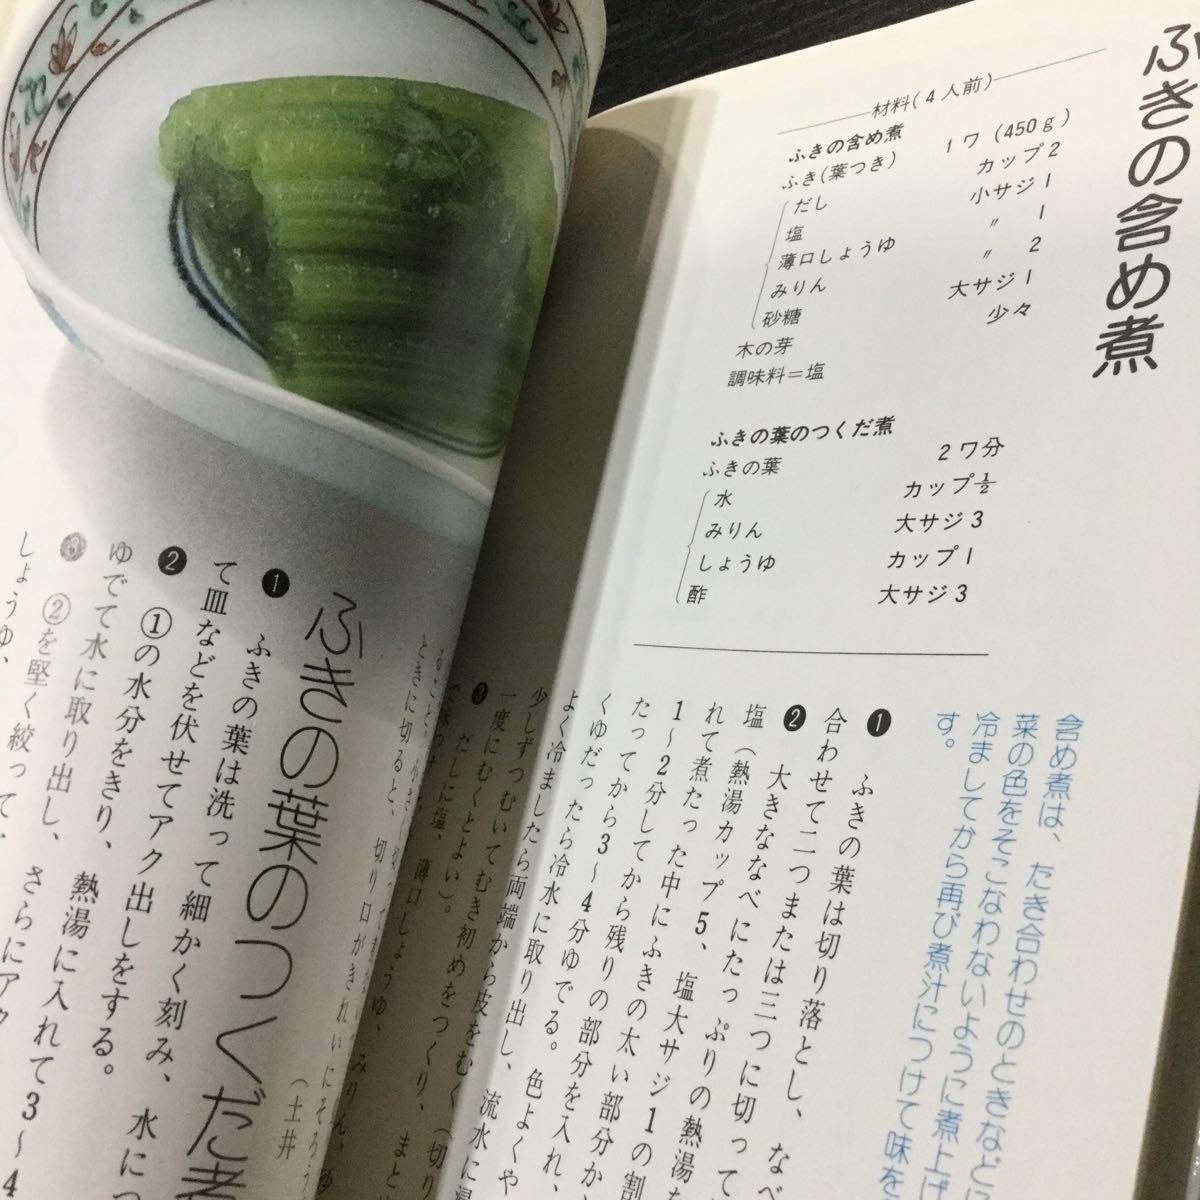 ふきの含め煮
材料(4人前)
ふきの含め煮
ふき(葉つき) 1ワ(450g)
だし カップ2
塩 小サジ1
薄口しょうゆ 〃 1
みりん 〃 2
砂糖 大サジ1
木の芽 少々
調味料=塩
ふきの葉のつくだ煮
ふきの葉 2ワ分
水 カップ½
みりん 大サジ3
しょうゆ カップ1
酢 大サジ3
含め煮は、たき合わせのときなど
菜の色をそこなわないように煮上げ
冷ましてから再び煮汁につけて味を
す。
❶ ふきの葉は切り落とし、なべ
合わせて二つまたは三つに切って
❷ 大きななべにたっぷりの熱湯
塩(熱湯カップ5、塩大サジ1の割
れて煮たった中にふきの太い部分か
1〜2分してから残りの部分を入れ、
たってから3〜4分ゆでる。
くゆだったら冷水に取り出し、色よくや
よく冷ましたら両端から皮をむく
少しずつむいてむき初めをつくり、まと
一度にむくとよい)。
❸ だしに塩、薄口しょうゆ、みりん、
ときに切ると、切り口がきれいにそろう
(土井
ふきの葉のつくだ煮
❶ ふきの葉は洗って細かく刻み、水につ
て皿などを伏せてアク出しをする。
❷ ①の水分をきり、熱湯に入れて3〜4
ゆでて水に取り出し、さらにアク
❸ ②を堅く絞って、
しょうゆ、